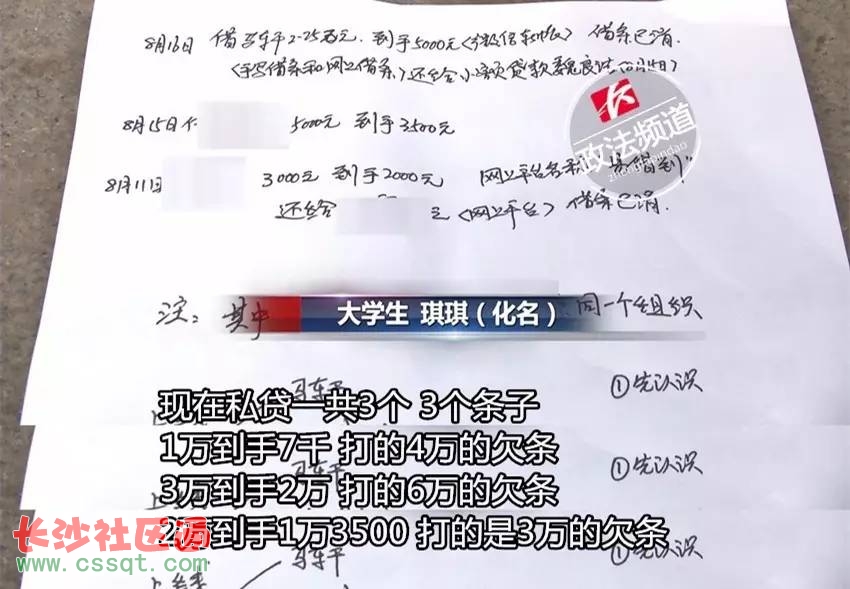 8月16日 借马东平2.25万元.到手5000元 借条已消.
(手写借条和网上借条)还给小额贷款魏良
8月15日 5000元 到手3500元
政法频道
8月11日 3000元 到手2000元 网上平台名称"易借到"
还给 元(网上平台) 借条已消.
注: 其中 同一个组织
大学生 琪琪(化名)
马东平 ①先认识
现在私贷一共3个 3个条子
1万到手7千 打的4万的欠条
①先认识
3万到手2万 打的6万的欠条
2万到手1万3500 打的是3万的欠条
①先认识
马东平
长沙社区通
www.cssqt.com